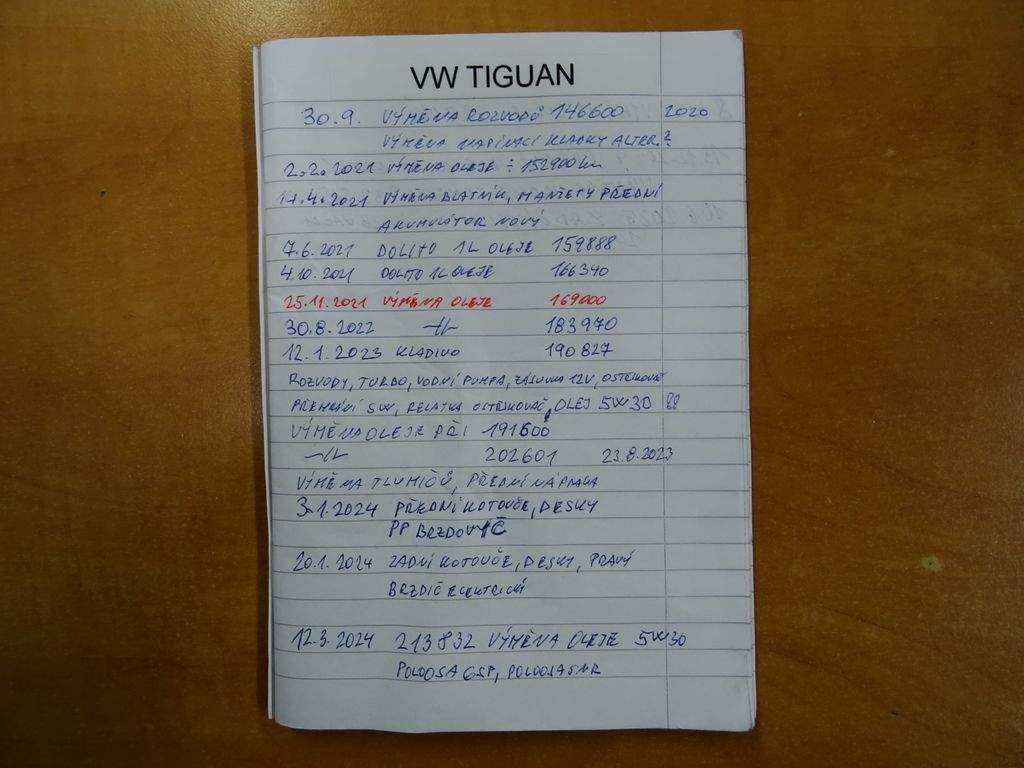 VW TIGUAN
30.9. VÝMĚNA ROZVODŮ 146600 2020
VÝMĚNA NAPÍNACÍ KLADKY ALTER.
2.2.2021 VÝMĚNA OLEJE ÷ 152900 km
17.4.2021 VÝMĚNA BLATNÍK, MANŽETY PŘEDNÍ
AKUMULÁTOR NOVÝ
7.6.2021 DOLITO 1L OLEJE 159888
4.10.2021 DOLITO 1L OLEJE 166340
25.11.2021 VÝMĚNA OLEJE 169000
30.8.2022 -//- 183970
12.1.2023 KLADIVO 190827
ROZVODY, TURBO, VODNÍ PUMPA, ZÁSUVKA 12V, OSTŘIKOVAČ
SW, RELATKA OSTŘIKOVAČ, OLEJ 5W30
VÝMĚNA OLEJE PŘI 191600
-//- 202601 23.8.2023
VÝMĚNA TLUMIČŮ, PŘEDNÍ NÁPRAVA
3.1.2024 PŘEDNÍ KOTOUČE, DESKY
PP
20.1.2024 ZADNÍ KOTOUČE, DESKY, PRAVÝ
BRZDIČ ELEKTRICKÝ
12.3.2024 213832 VÝMĚNA OLEJE 5W30
POLOOSA GSP, POLOOSA SNR